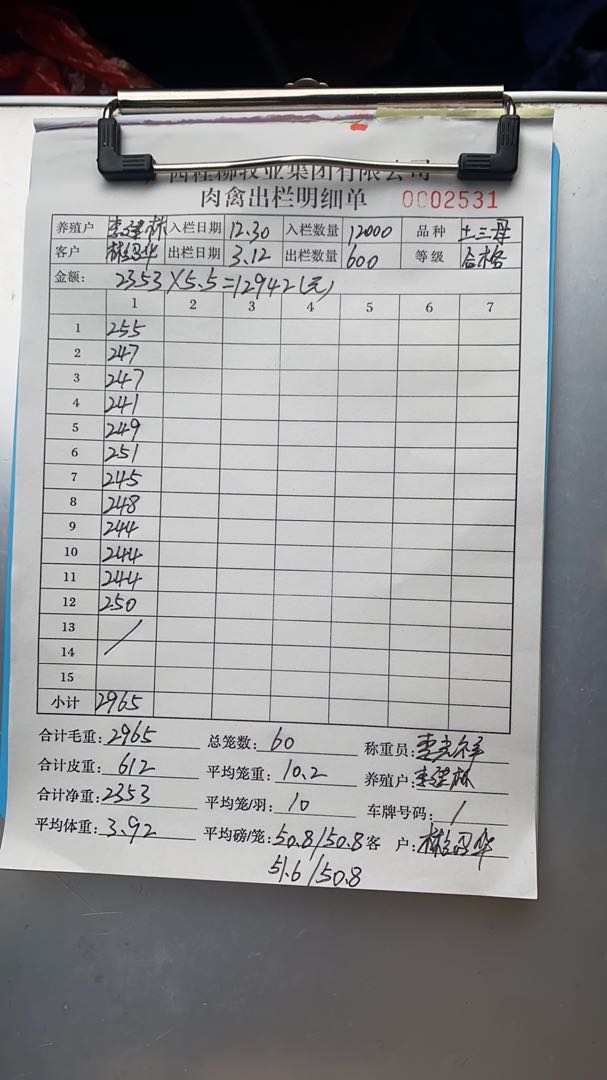 桂柳牧业集团有限公司
肉禽出栏明细单 0002531
养殖户 李建林 入栏日期 12.30 入栏数量 12000 品种 土三母
客户 出栏日期 3.12 出栏数量 600 等级 合格
金额: 2353×5.5=12942(元)
1 2 3 4 5 6 7
1 255
2 247
3 247
4 241
5 249
6 251
7 245
8 248
9 244
10 244
11 244
12 250
13 /
14
15
小计 2965
合计毛重: 2965 总笼数: 60 称重员:
合计皮重: 612 平均笼重: 10.2 养殖户: 李建林
合计净重: 2353 平均笼/羽: 10 车牌号码: /
平均体重: 3.92 平均磅/笼: 50.8/50.8 客 户:
51.6/50.8